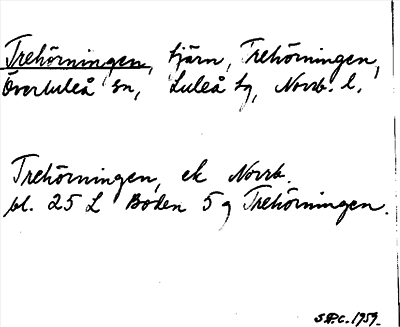 Trehörningen, tjärn, Trehörningen,
Överluleå sn, Luleå tg, Norrb. l.
Trehörningen, ek Norrb.
bl. 25 L Boden 5 g Trehörningen.
1959.